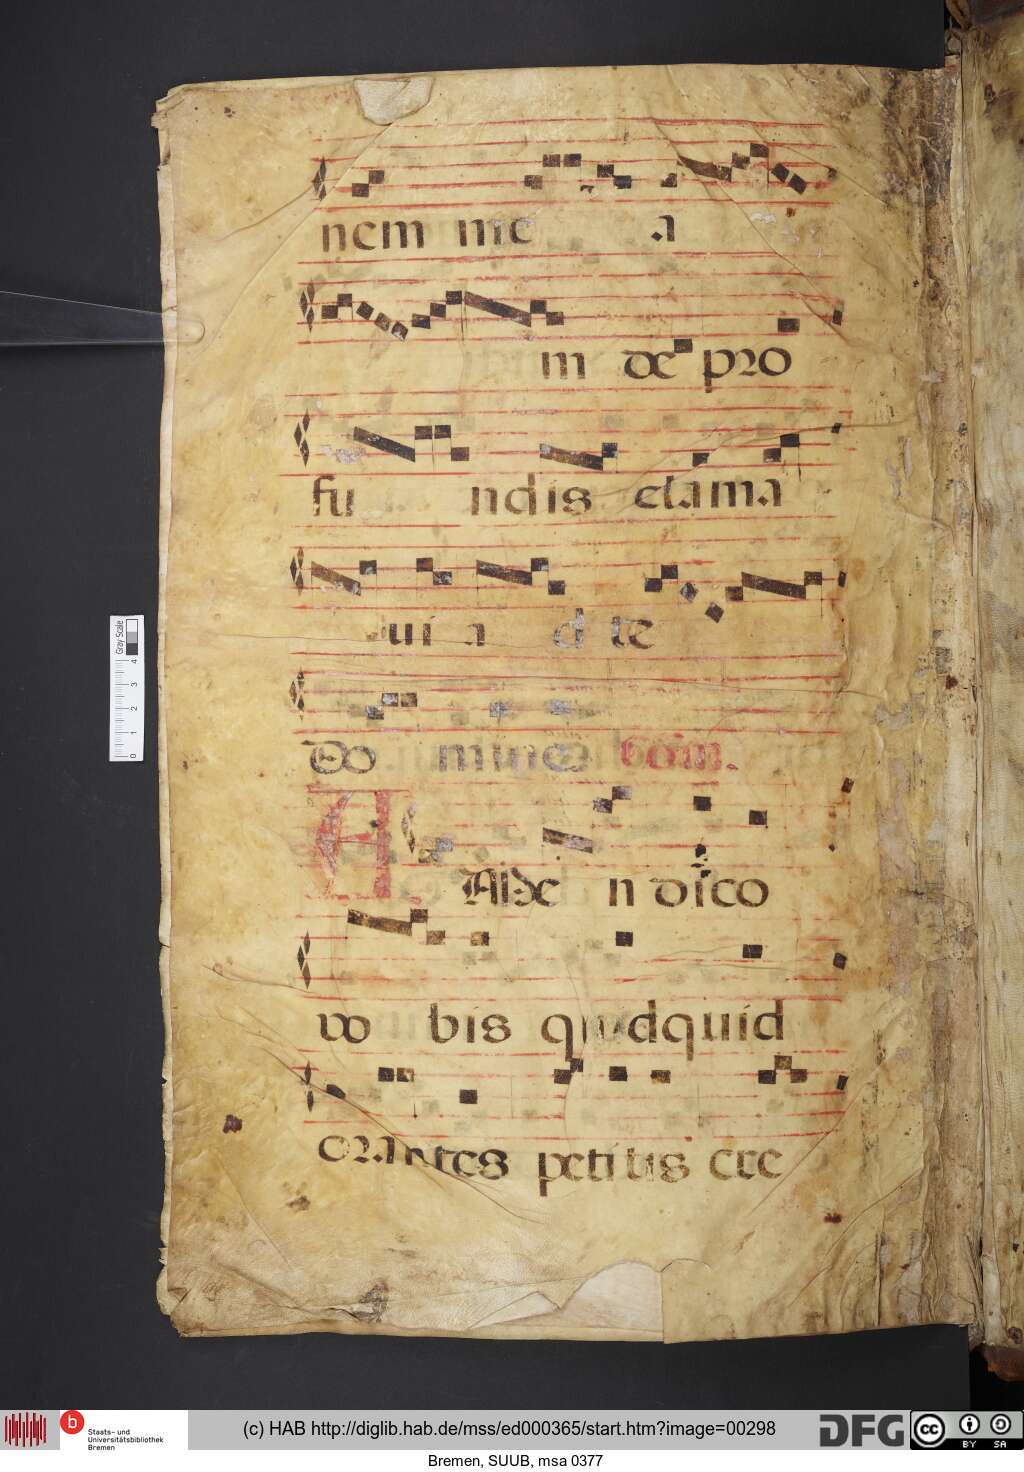 nem me a
m de pro
fu ndis clama
ui a d te
Do mine com.
A Amen dico
vo bis quidquid
orantes petitis cre
Gray Scale
0 1 2 3 4
b
Staats- und
Universitätsbibliothek
Bremen
(c) HAB http://diglib.hab.de/mss/ed000365/start.htm?image=00298
DFG
cc BY SA
Bremen, SUUB, msa 0377